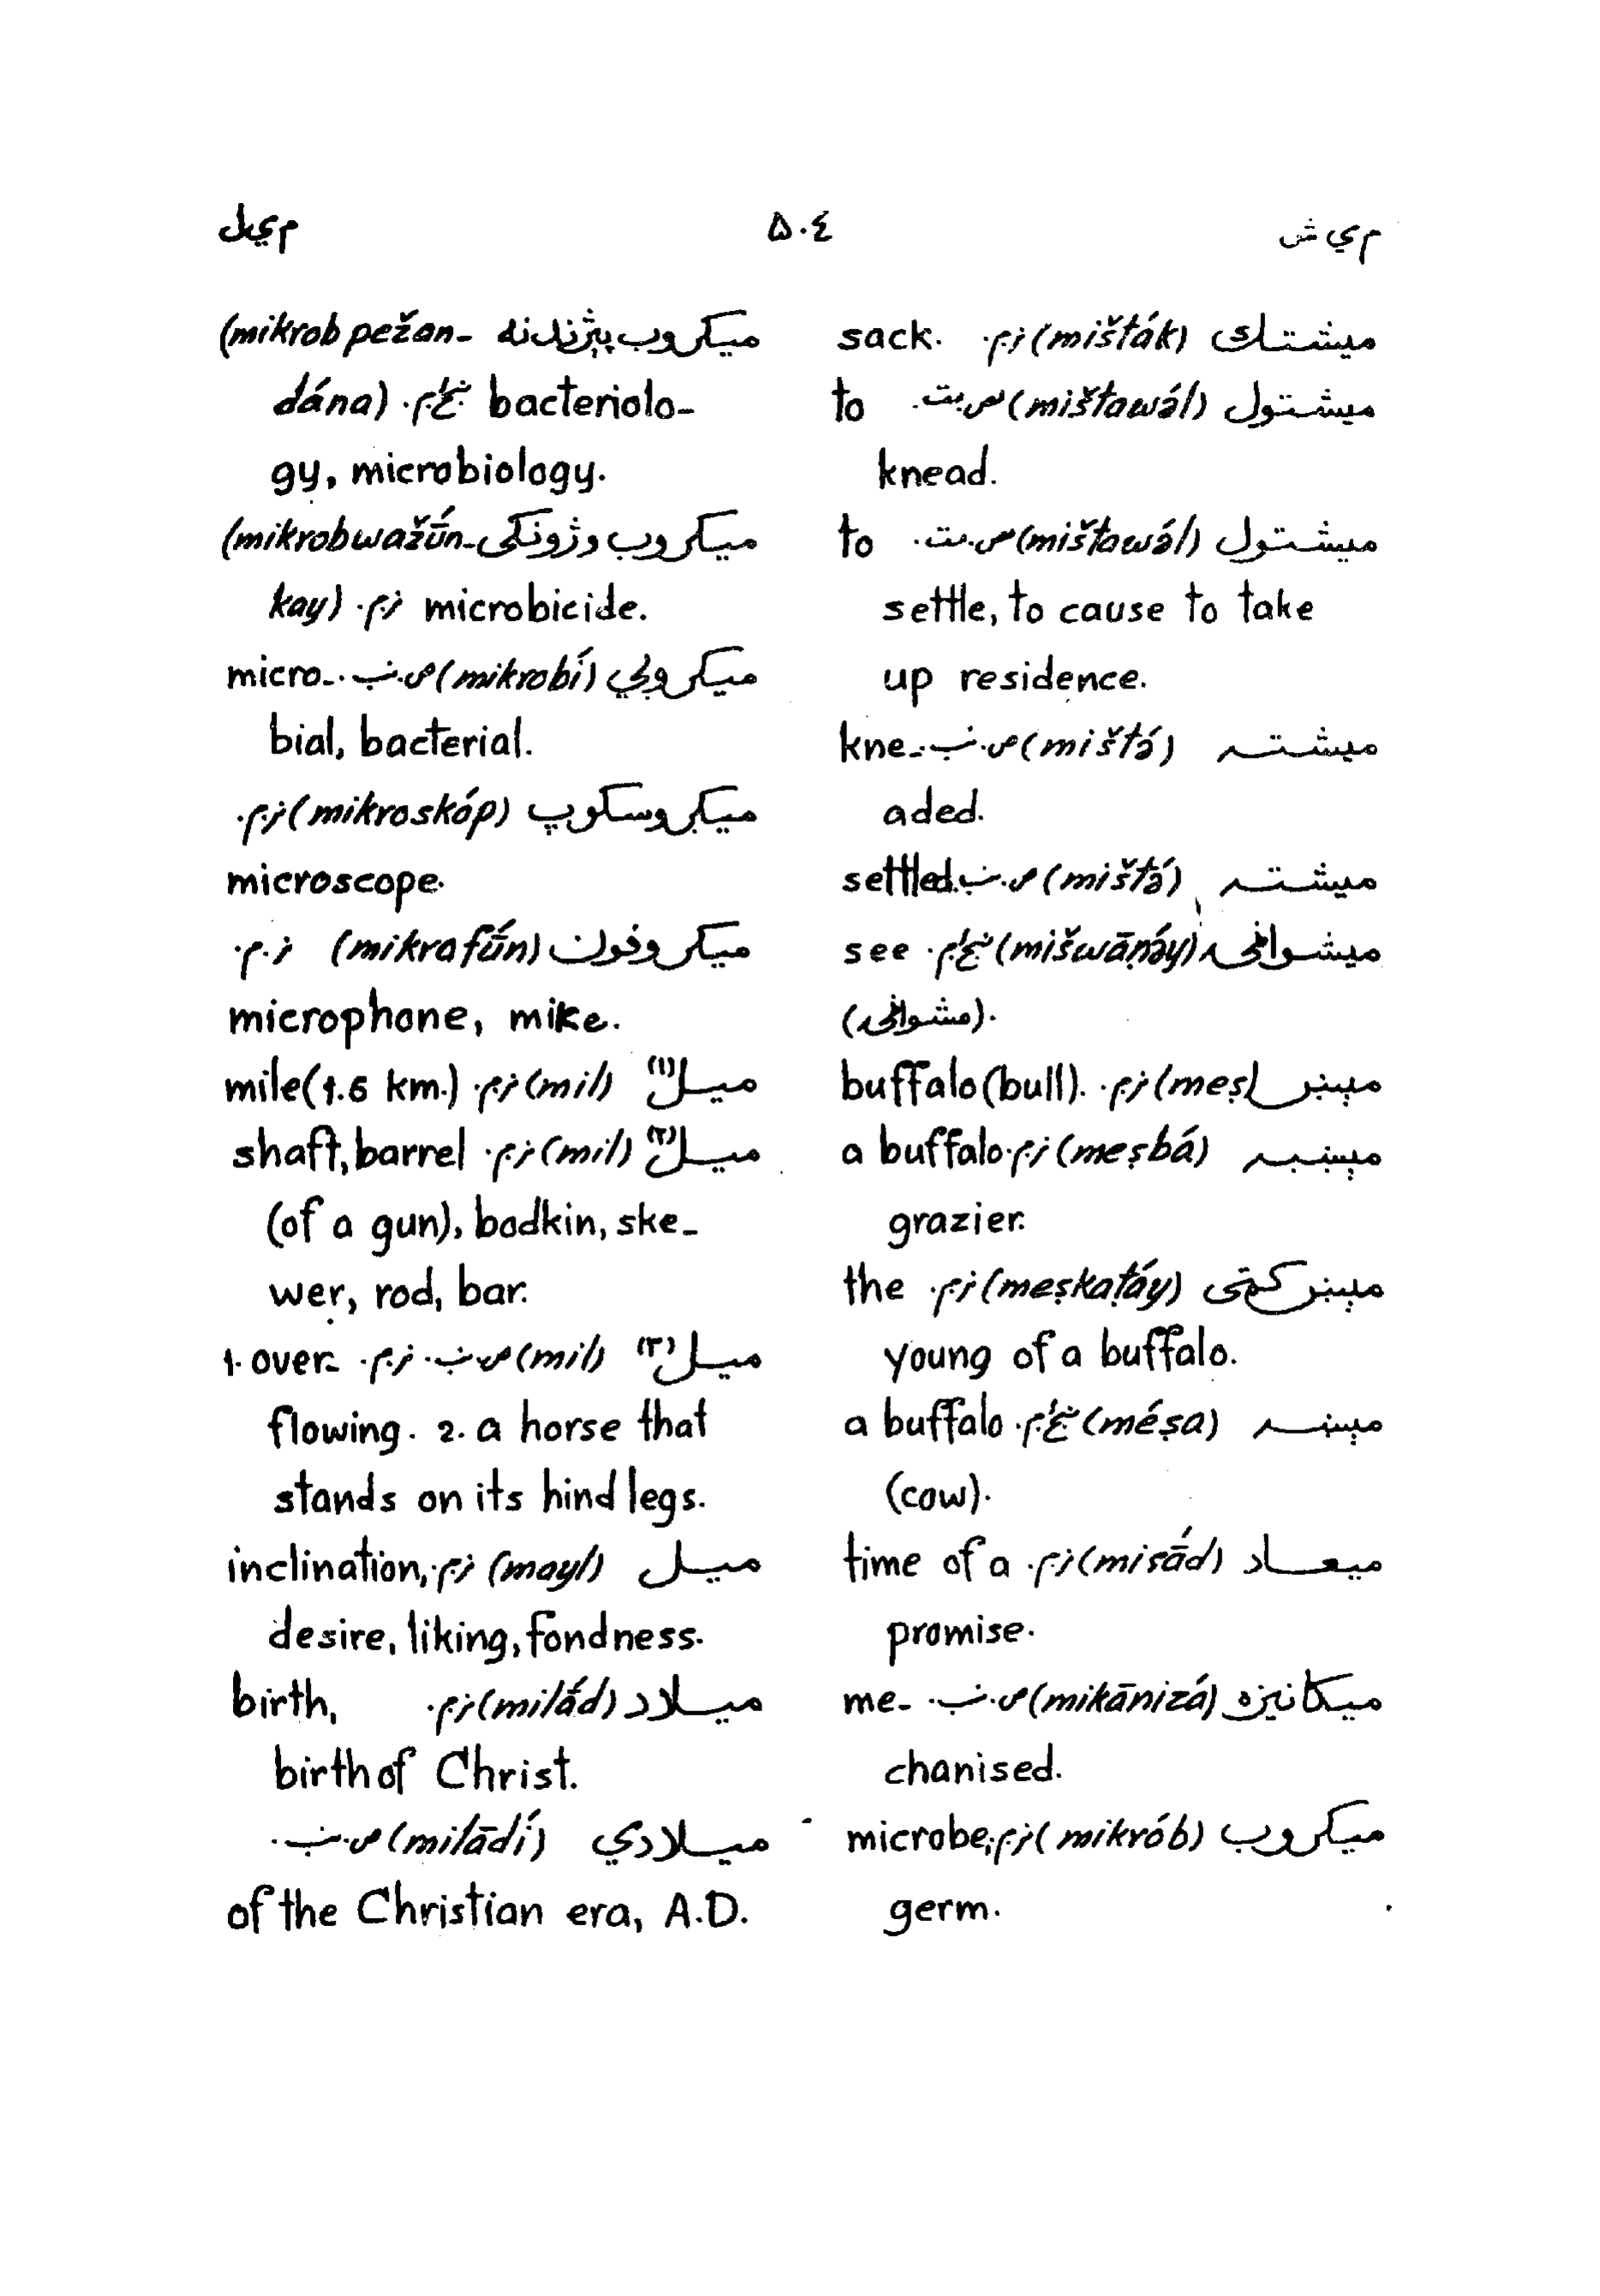 م ي ش ۵۰٤ م ي ل
ميشتاك (mišták) ن.م. sack.
ميشتول (mištawə́l) ص.بت. to
knead.
ميشتول (mištawə́l) ص.بت. to
settle, to cause to take
up residence.
ميشته (mištə́) ص.ن‌ب. kne-
aded.
ميشته (mištə́) ص.ن‌ب. settled.
ميشواڼۍ (mišwāṇə́y) see
(مشواڼۍ).
مېښ (meṣ) ن.م. buffalo (bull).
مېښبه (meṣbá) ن.م. a buffalo
grazier.
مېښ كټى (meṣkaṭáy) ن.م. the
young of a buffalo.
مېښه (méṣa) a buffalo
(cow).
ميعاد (misā́d) ن.م. time of a
promise.
ميكانيزه (mikānizá) ص.ن‌ب. me-
chanised.
ميكروب (mikrób) ن.م. microbe,
germ.
ميكروب پېژندنه (mikrob pežan-
dána) bacteriolo-
gy, microbiology.
ميكروب وژونكى (mikrobwažū́n-
kay) ن.م. microbicide.
ميكروبي (mikrobí) ص.ن‌ب. micro-
bial, bacterial.
ميكروسكوپ (mikroskóp) ن.م.
microscope.
ميكروفون (mikrafū́n) ن.م.
microphone, mike.
ميل (۱) (mil) ن.م. mile (1.6 km.)
ميل (۲) (mil) ن.م. shaft, barrel
(of a gun), bodkin, ske-
wer, rod, bar.
ميل (۳) (mil) ص.ن‌ب. ن.م. 1. over-
flowing. 2. a horse that
stands on its hind legs.
ميل (mayl) ن.م. inclination,
desire, liking, fondness.
ميلاد (milā́d) ن.م. birth,
birth of Christ.
ميلادي (milādí) ص.ن‌ب.
of the Christian era, A.D.